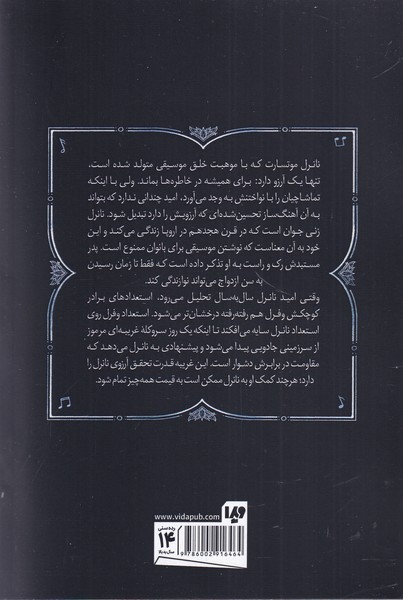 نانرل موتسارت که با موهبت خلق موسیقی متولد شده است،
تنها یک آرزو دارد: برای همیشه در خاطره‌ها بماند. ولی با اینکه
تماشاچیان را با نواختنش به وجد می‌آورد، امید چندانی ندارد که بتواند
به آن آهنگ‌ساز تحسین‌شده‌ای که آرزویش را دارد تبدیل شود. نانرل
زنی جوان است که در قرن هجدهم در اروپا زندگی می‌کند و این
خود به آن معناست که نوشتن موسیقی برای بانوان ممنوع است. پدر
مستبدش رک و راست به او تذکر داده است که فقط تا زمان رسیدن
به سن ازدواج می‌تواند نوازندگی کند.
وقتی امید نانرل سال‌به‌سال تحلیل می‌رود، استعدادهای برادر
کوچکش ولفرل هم رفته‌رفته درخشان‌تر می‌شود. استعداد ولفرل روی
استعداد نانرل سایه می‌افکند تا اینکه یک روز سروکلهٔ غریبه‌ای مرموز
از سرزمینی جادویی پیدا می‌شود و پیشنهادی به نانرل می‌دهد که
مقاومت در برابرش دشوار است. این غریبه قدرت تحقق آرزوی نانرل را
دارد؛ هرچند کمک او به نانرل ممکن است به قیمت همه‌چیز تمام شود.
ویدا
www.vidapub.com
رده‌سنی
۱۴
سال‌به‌بالا
9786002916464